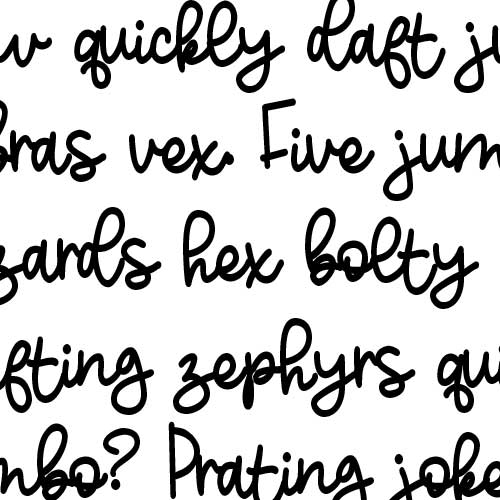 w quickly daft ju
bras vex. Five jum
zards hex bolty
fting zephyrs qui
mbo? Prating joke